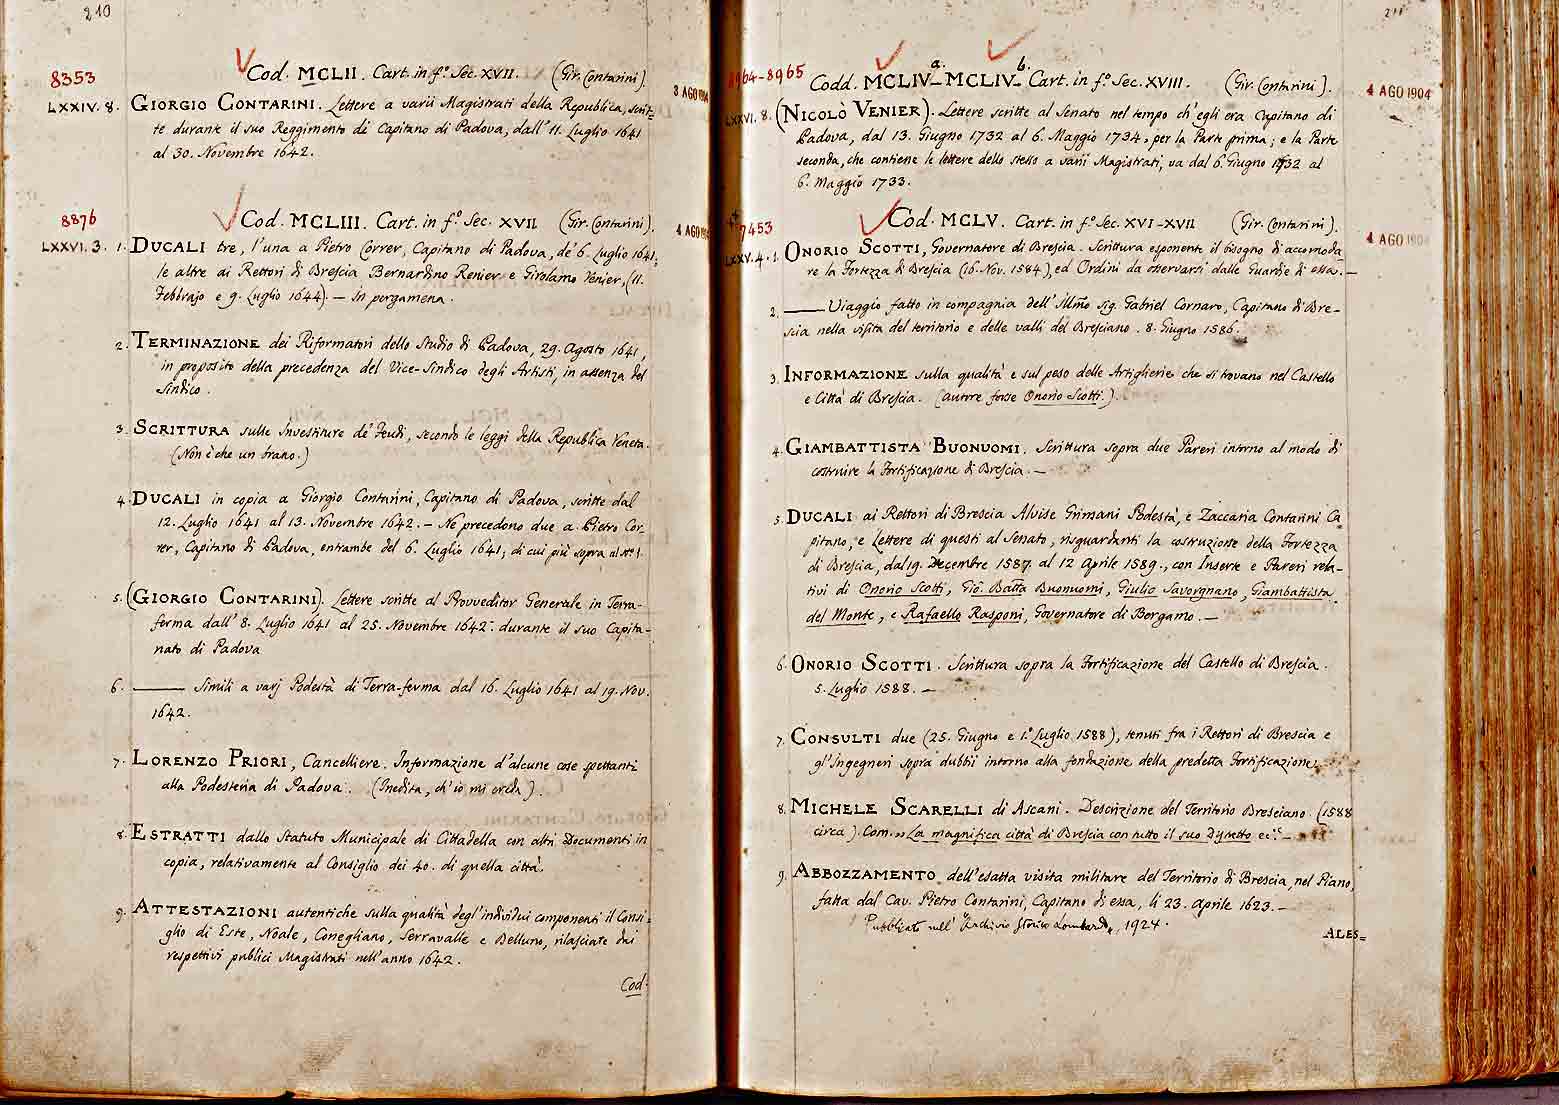 210
8353
Cod. MCLII. Cart. in f.º Sec. XVII. (Gir. Contarini).
3 AGO 1904
LXXIV. 8. GIORGIO CONTARINI. Lettere a varii Magistrati della Republica, scrit-
te durante il suo Reggimento de Capitano di Padova, dall' 11. Luglio 1641
al 30. Novembre 1642.
8876
Cod. MCLIII. Cart. in f.º Sec. XVII (Gir. Contarini).
4 AGO 1904
LXXVI. 3. 1. DUCALI tre, l'una a Pietro Correr, Capitano di Padova, de' 6. Luglio 1641;
le altre ai Rettori di Brescia Bernardino Renier e Girolamo Venier, (11.
Febbrajo e 9. Luglio 1644). — In pergamena.
2. TERMINAZIONE dei Riformatori dello Studio di Padova, 29. Agosto 1641,
in proposito della precedenza del Vice-Sindico degli Artisti, in assenza del
Sindico.
3. SCRITTURA sulle Investiture de' Feudi, secondo le leggi della Republica Veneta.
(Non è che un brano.)
4. DUCALI in copia a Giorgio Contarini, Capitano di Padova, scritte dal
12. Luglio 1641 al 13. Novembre 1642. — Ne precedono due a Pietro Cor-
rer, Capitano di Padova, entrambe del 6. Luglio 1641, di cui più sopra al Nº 1.
5. (GIORGIO CONTARINI). Lettere scritte al Provveditor Generale in Terra-
ferma dall' 8. Luglio 1641 al 25. Novembre 1642. durante il suo Capita-
nato di Padova
6. ——— Simili a varj Podestà di Terra-ferma dal 16. Luglio 1641 al 19. Nov.
1642.
7. LORENZO PRIORI, Cancelliere. Informazione d'alcune cose spettanti
alla Podesteria di Padova. (Inedita, ch'io mi creda).
8. ESTRATTI dallo Statuto Municipale di Cittadella con altri Documenti in
copia, relativamente al Consiglio dei 40. di quella città.
9. ATTESTAZIONI autentiche sulla qualità degl'individui componenti il Consi-
glio di Este, Noale, Conegliano, Serravalle e Belluno, rilasciate dai
respettivi publici Magistrati nell'anno 1642.
Cod.
211
8964-8965
Codd. MCLIVa– MCLIVb– Cart. in f.º Sec. XVIII. (Gir. Contarini).
4 AGO 1904
LXXVI. 8. (NICOLÒ VENIER). Lettere scritte al Senato nel tempo ch'egli era Capitano di
Padova, dal 13. Giugno 1732 al 6. Maggio 1734, per la Parte prima; e la Parte
seconda, che contiene le lettere dello stesso a varii Magistrati, va dal 6. Giugno 1732 al
6. Maggio 1733.
7453
Cod. MCLV. Cart. in f.º Sec. XVI-XVII (Gir. Contarini).
4 AGO 1904
LXXV. 4. 1. ONORIO SCOTTI, Governatore di Brescia. Scrittura esponente il bisogno di accomoda-
re la Fortezza di Brescia (16. Nov. 1584), ed Ordini da osservarsi dalle Guardie di essa. —
2. ——— Viaggio fatto in compagnia dell' Illmo sig. Gabriel Cornaro, Capitano di Bre-
scia nella visita del territorio e delle valli del Bresciano. 8. Giugno 1586.
3. INFORMAZIONE sulla qualità e sul peso delle Artiglierie che si trovano nel Castello
e Città di Brescia. (autore forse Onorio Scotti.).
4. GIAMBATTISTA BUONUOMI. Scrittura sopra due Pareri intorno al modo di
costruire la Fortificazione di Brescia. —
5. DUCALI ai Rettori di Brescia Alvise Grimani Podestà, e Zaccaria Contarini Ca-
pitano, e Lettere di questi al Senato, risguardanti la costruzione della Fortezza
di Brescia, dal 19. Decembre 1587. al 12 Aprile 1589., con Inserte e Pareri rela-
tivi di Onorio Scotti, Gio. Batta Buonuomi, Giulio Savorgnano, Giambattista
del Monte, e Rafaello Rasponi, Governatore di Bergamo. —
6. ONORIO SCOTTI. Scrittura sopra la Fortificazione del Castello di Brescia.
5. Luglio 1588. —
7. CONSULTI due (25. Giugno e 1.º Luglio 1588), tenuti fra i Rettori di Brescia e
gl'Ingegneri sopra dubbii intorno alla fondazione della predetta Fortificazione.
8. MICHELE SCARELLI di Ascani. Descrizione del Territorio Bresciano (1588
circa). Com. „ La magnifica città di Brescia con tutto il suo Distretto ec." —
9. ABBOZZAMENTO dell'esatta visita militare del Territorio di Brescia, nel Piano,
fatta dal Cav. Pietro Contarini, Capitano di essa, li 23. Aprile 1623. —
Pubblicato nell' "Archivio Storico Lombardo„, 1924.
ALES=